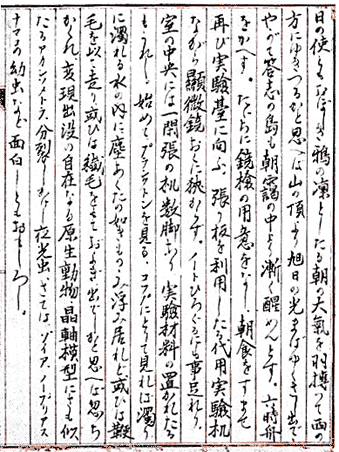 日の使ともおぼしき鴉の凜としたる朝の大氣を羽搏つて西の
方にゆきつるかと思へば山の頂より旭日の光まばゆくさし出で
やがて答志の島も朝靄の中より漸く醒めんとす。六時舟
をかへす。たゞちに鏡檢の用意をなし朝食をすませ
再び実験臺に向ふ。張り板を利用したる代用実験机
ながら顕微鏡おくに狹からず。ノートひろぐるにも事足れり。
室の中央には一閑張の机数脚あり実験材料の置かれたる
もうれし。始めてプランクトンを見る。コップにとりて見れば濁り
に濁れる水の内に塵あくたの如きもの浮み居れど或ひは鞭
毛を以て走り或ひは纎毛をもておよぎ出でしかと思へば忽ち
かくれ変現出沒の自在なる原生動物晶軸模型にも似
たるアカンソメトラ、分裂 夜光虫、さては
ナマコの幼虫など面白しともおもしろし。